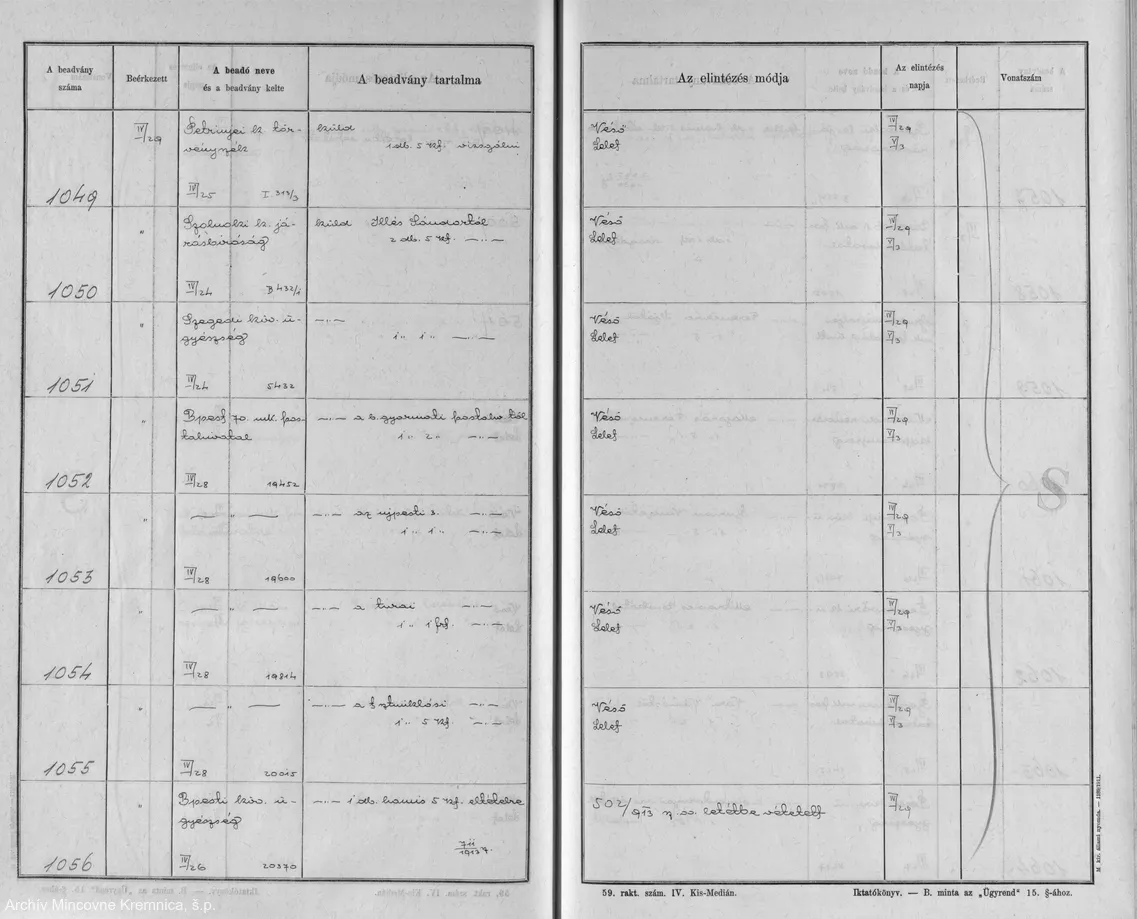 A beadvány száma
Beérkezett
A beadó neve és a beadvány kelte
A beadvány tartalma
Az elintézés módja
Az elintézés napja
Vonatszám
1049
IV/29
Petrinjei kr. tör-
vényszék
IV/25 I 313/3
küld
1 db. 5 kf. vizsgálni
Véső
Lelet
IV/29
V/3
1050
"
Szolnoki kr. já-
rásbiróság
IV/24 B 432/1
küld Illés Sándortól
2 db. 5 kf. —„—
Véső
Lelet
IV/29
V/3
1051
"
Szegedi kir. ü-
gyészség
IV/24 5432
—„—
1 „ 1 „ —„—
Véső
Lelet
IV/29
V/3
1052
"
Bpest 70. mk. pos-
tahivatal
IV/28 19452
—„— a b. gyarmati postahiv. tól
1 „ 2 „ —„—
Véső
Lelet
IV/29
V/3
1053
"
— „ —
IV/28 19600
—„— az ujpesti 3. —„—
1 „ 1 „ —„—
Véső
Lelet
IV/29
V/3
1054
"
— „ —
IV/28 19814
—„— a turai —„—
1 „ 1 frt. —„—
Véső
Lelet
IV/29
V/3
1055
"
— „ —
IV/28 20015
—„— a —„—
1 „ 5 kf. —„—
Véső
Lelet
IV/29
V/3
1056
"
Bpesti kir. ü-
gyészség
IV/26 20370
—„— 1 db. hamis 5 kf. eltételre
711/1913
502/913 sz. letétbe vétetett
IV/29
59. rakt. szám. IV. Kis-Medián.
Iktatókönyv. — B. minta az „Ügyrend" 15. §-ához.
M. kir. állami nyomda. —
Archív Mincovne Kremnica, š.p.